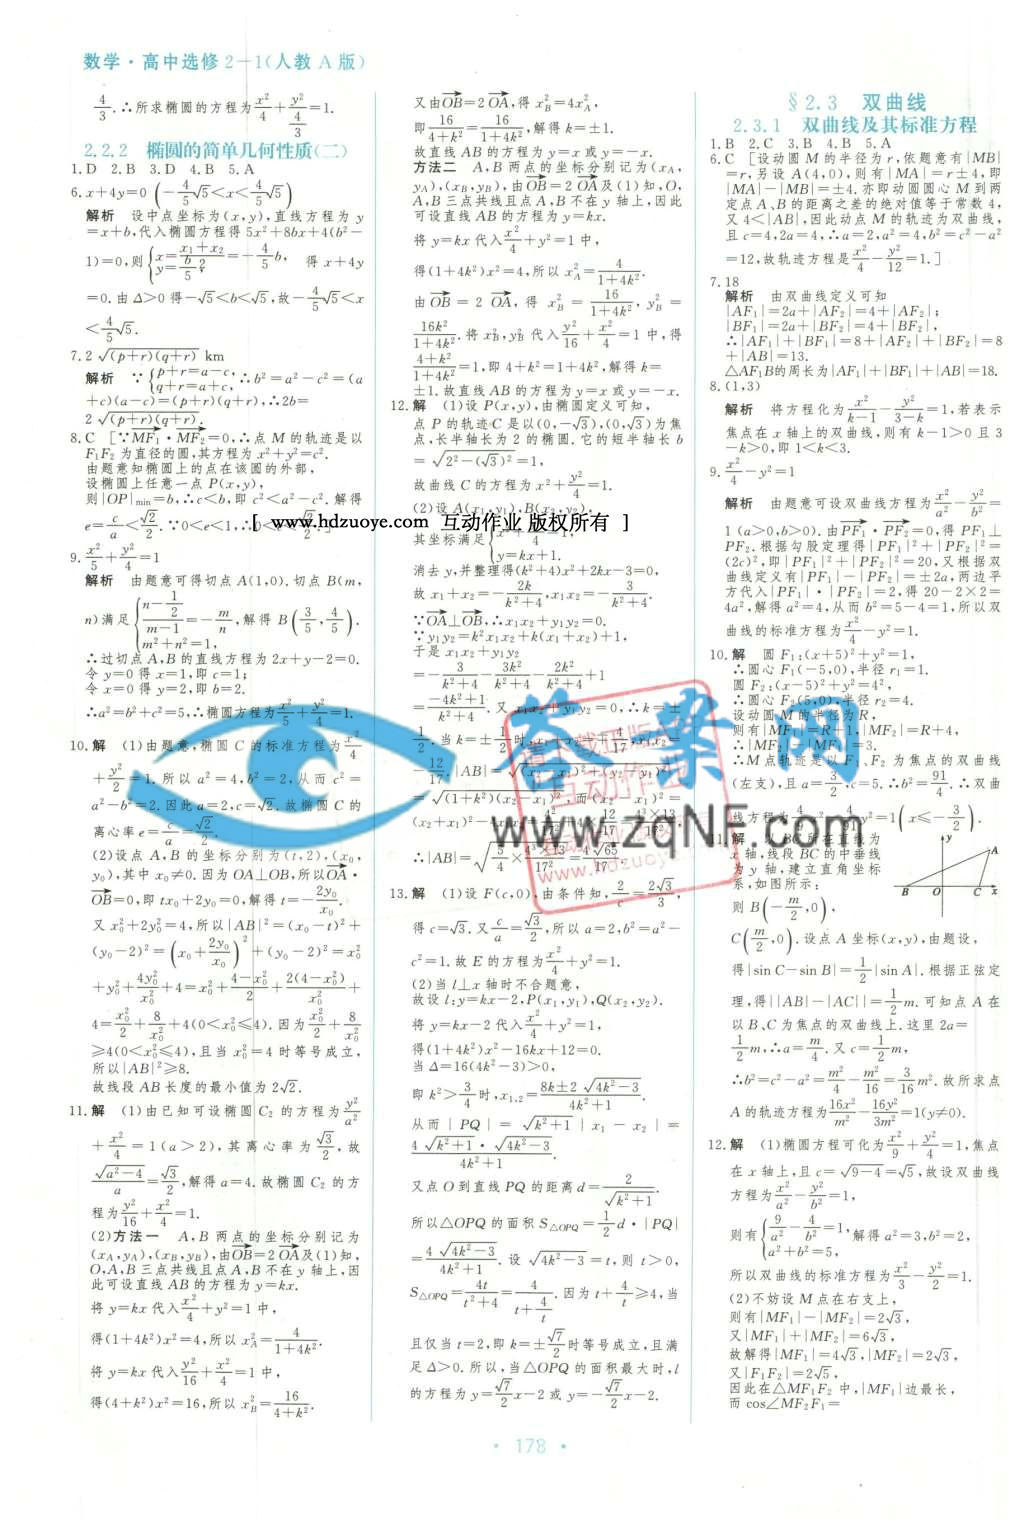 数学·高中选修2-1(人教A版)
4/3.∴所求椭圆的方程为x²/4+y²/(4/3)=1.
2.2.2 椭圆的简单几何性质(二)
1.D 2.B 3.D 4.B 5.A
6.x+4y=0 (-4/5√5<x<4/5√5)
解析 设中点坐标为(x,y),直线方程为y
=x+b,代入椭圆方程得5x²+8bx+4(b²-
=0.由Δ>0得-√5<b<√5,故-4/5√5<x
<4/5√5.
7.2√((p+r)(q+r)) km
解析 ∵{p+r=a-c, q+r=a+c, ∴b²=a²-c²=(a
+c)(a-c)=(p+r)(q+r),∴2b=
2√((p+r)(q+r)).
8.C [∵MF₁·MF₂=0,∴点M的轨迹是以
F₁F₂为直径的圆,其方程为x²+y²=c².
由题意知椭圆上的点在该圆的外部,
设椭圆上任意一点P(x,y),
则|OP|min=b,∴c<b,即c²<a²-c².解得
e=c/a<√2/2.∵0<e<1,
9.x²/5+y²/4=1
解析 由题意可得切点A(1,0).切点B(m,
n)满足{(n-1/2)/(m-1)=-m/n, m²+n²=1, 解得B(3/5,4/5).
∴过切点A,B的直线方程为2x+y-2=0.
令y=0得x=1,即c=1;
令x=0得y=2,即b=2.
∴a²=b²+c²=5,∴椭圆方程为x²/5+y²/4=1.
10.解 (1)由题意,椭圆C的标准方程为x²/4
+y²/2=1.所以a²=4,b²=2,从而c²=
a²-b²=2.因此a=2,c=√2.故椭圆C的
离心率e=c/a=√2/2.
(2)设点A,B的坐标分别为(t,2),(x₀,
y₀),其中x₀≠0.因为OA⊥OB,所以OA·
OB=0,即tx₀+2y₀=0,解得t=-2y₀/x₀.
又x₀²+2y₀²=4,所以|AB|²=(x₀-t)²+
(y₀-2)²=(x₀+2y₀/x₀)²+(y₀-2)²=
x₀²+y₀²+4y₀²/x₀²+4=x₀²+(4-x₀²)/2+2(4-x₀²)/x₀²+
4=x₀²/2+8/x₀²+4(0<x₀²≤4).因为x₀²/2+8/x₀²
≥4(0<x₀²≤4),且当x₀²=4时等号成立,
所以|AB|²≥8.
故线段AB长度的最小值为2√2.
11.解 (1)由已知可设椭圆C₂的方程为y²/a²
+x²/4=1(a>2),其离心率为√3/2,故
√(a²-4)/a=√3/2,解得a=4.故椭圆C₂的方
程为y²/16+x²/4=1.
(2)方法一 A,B两点的坐标分别记为
(xA,yA),(xB,yB),由OB=2OA及(1)知,
O,A,B三点共线且点A,B不在y轴上,因
此可设直线AB的方程为y=kx.
将y=kx代入x²/4+y²=1中,
得(1+4k²)x²=4,所以xA²=4/(1+4k²).
将y=kx代入y²/16+x²/4=1中,
得(4+k²)x²=16,所以xB²=16/(4+k²).
又由OB=2OA,得xB²=4xA²,
即16/(4+k²)=16/(1+4k²),解得k=±1.
故直线AB的方程为y=x或y=-x.
方法二 A,B两点的坐标分别记为(xA,
yA),(xB,yB),由OB=2OA及(1)知,O,
A,B三点共线且点A,B不在y轴上,因此
可设直线AB的方程为y=kx.
将y=kx代入x²/4+y²=1中,
得(1+4k²)x²=4,所以xA²=4/(1+4k²).
由OB=2OA,得xB²=16/(1+4k²),yB²=
16k²/(1+4k²).将xB²,yB²代入y²/16+x²/4=1中,得
(4+k²)/(1+4k²)=1,即4+k²=1+4k²,解得k=
±1.故直线AB的方程为y=x或y=-x.
12.解 (1)设P(x,y),由椭圆定义可知,
点P的轨迹C是以(0,-√3),(0,√3)为焦
点,长半轴长为2的椭圆.它的短半轴长b
=√(2²-(√3)²)=1,
故曲线C的方程为x²+y²/4=1.
(2)设A(x₁,y₁),B(x₂,y₂),
其坐标满足{x²+y²/4=1, y=kx+1.
[ www.hdzuoye.com 互动作业 版权所有 ]
消去y,并整理得(k²+4)x²+2kx-3=0,
故x₁+x₂=-2k/(k²+4),x₁x₂=-3/(k²+4).
∵OA⊥OB,∴x₁x₂+y₁y₂=0.
∵y₁y₂=k²x₁x₂+k(x₁+x₂)+1,
于是x₁x₂+y₁y₂
=-3/(k²+4)-3k²/(k²+4)-2k²/(k²+4)+1
=(-4k²+1)/(k²+4).又x₁x₂+y₁y₂=0,∴k=±
∴|AB|=√(5/4×(4³×13)/17²)=4√65/17.
13.解 (1)设F(c,0),由条件知,2/c=2√3/3,
得c=√3.又c/a=√3/2,所以a=2,b²=a²-
c²=1.故E的方程为x²/4+y²=1.
(2)当l⊥x轴时不合题意,
故设l:y=kx-2,P(x₁,y₁),Q(x₂,y₂).
将y=kx-2代入x²/4+y²=1,
得(1+4k²)x²-16kx+12=0.
当Δ=16(4k²-3)>0,
即k²>3/4时,x₁,₂=(8k±2√(4k²-3))/(4k²+1).
从而|PQ|=√(k²+1)|x₁-x₂|=
4√(k²+1)·√(4k²-3)/(4k²+1).
又点O到直线PQ的距离d=2/√(k²+1).
所以△OPQ的面积S△OPQ=1/2d·|PQ|
=4√(4k²-3)/(4k²+1).设√(4k²-3)=t,则t>0,
S△OPQ=4t/(t²+4)=4/(t+4/t).因为t+4/t≥4,当
且仅当t=2,即k=±√7/2时等号成立,且满
足Δ>0.所以,当△OPQ的面积最大时,l
的方程为y=√7/2x-2或y=-√7/2x-2.
§2.3 双曲线
2.3.1 双曲线及其标准方程
1.B 2.C 3.B 4.B 5.A
6.C [设动圆M的半径为r,依题意有|MB|
=r,另设A(4,0),则有|MA|=r±4,即
|MA|-|MB|=±4.亦即动圆圆心M到两
定点A、B的距离之差的绝对值等于常数4,
又4<|AB|,因此动点M的轨迹为双曲线,
且c=4,2a=4,∴a=2,a²=4,b²=c²-a²
=12,故轨迹方程是x²/4-y²/12=1.]
7.18
解析 由双曲线定义可知
|AF₁|=2a+|AF₂|=4+|AF₂|;
|BF₁|=2a+|BF₂|=4+|BF₂|,
∴|AF₁|+|BF₁|=8+|AF₂|+|BF₂|=8
+|AB|=13.
△AF₁B的周长为|AF₁|+|BF₁|+|AB|=18.
8.(1,3)
解析 将方程化为x²/(k-1)-y²/(3-k)=1,若表示
焦点在x轴上的双曲线,则有k-1>0且3
-k>0,即1<k<3.
9.x²/4-y²=1
解析 由题意可设双曲线方程为x²/a²-y²/b²=
1(a>0,b>0),由PF₁·PF₂=0,得PF₁⊥
PF₂.根据勾股定理得|PF₁|²+|PF₂|²=
(2c)²,即|PF₁|²+|PF₂|²=20,又根据双
曲线定义有|PF₁|-|PF₂|=±2a,两边平
方代入|PF₁|·|PF₂|=2,得20-2×2=
4a²,解得a²=4,从而b²=5-4=1,所以双
曲线的标准方程为x²/4-y²=1.
10.解 圆F₁:(x+5)²+y²=1,
∴圆心F₁(-5,0),半径r₁=1.
圆F₂:(x-5)²+y²=4²,
∴圆心F₂(5,0),半径r₂=4.
设动圆M的半径为R,
则有|MF₁|=R+1,|MF₂|=R+4,
∴|MF₂|-|MF₁|=3.
∴M点轨迹是以F₁、F₂为焦点的双曲线
(左支),且a=3/2,c=5.∴b²=91/4.∴双曲
答案网
www.zqNF.com
11.解 以BC所在直线为
x轴,线段BC的中垂线
为y轴,建立直角坐标
系,如图所示:
y A B O C x
则B(-m/2,0),
C(m/2,0).设点A坐标(x,y),由题设,
得|sin C-sin B|=1/2|sin A|.根据正弦定
理,得||AB|-|AC||=1/2m.可知点A在
以B、C为焦点的双曲线上.这里2a=
1/2m,∴a=m/4.又c=1/2m,
∴b²=c²-a²=m²/4-m²/16=3/16m².故所求点
A的轨迹方程为16x²/m²-16y²/3m²=1(y≠0).
12.解 (1)椭圆方程可化为x²/9+y²/4=1,焦点
在x轴上,且c=√(9-4)=√5,故设双曲线
方程为x²/a²-y²/b²=1,
则有{9/a²-4/b²=1, a²+b²=5, 解得a²=3,b²=2,
所以双曲线方程为x²/3-y²/2=1.
(2)不妨设M点在右支上,
则有|MF₁|-|MF₂|=2√3,
又|MF₁|+|MF₂|=6√3,
故解得|MF₁|=4√3,|MF₂|=2√3,
又|F₁F₂|=2√5,
因此在△MF₁F₂中,|MF₁|边最长,
而cos∠MF₂F₁=
·178·